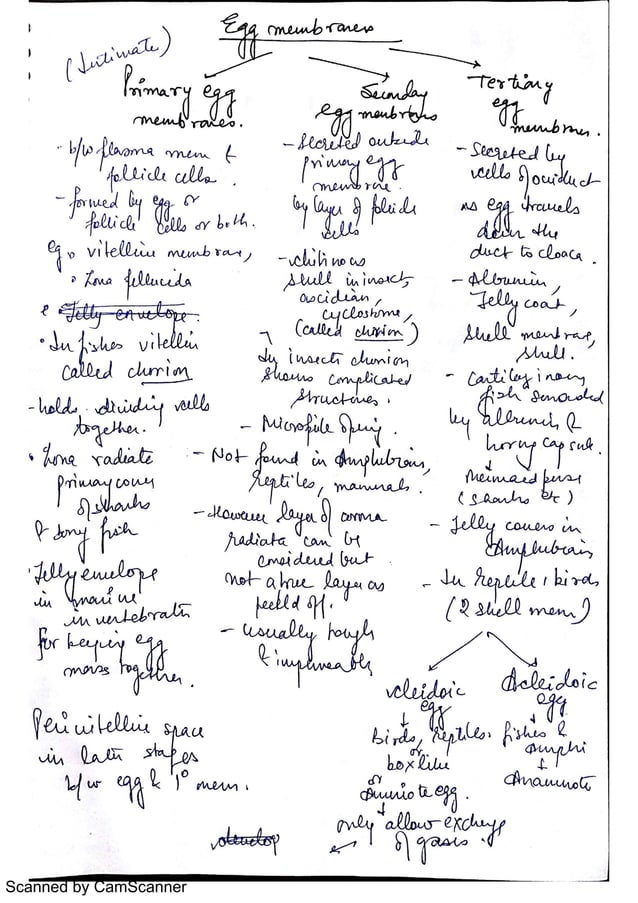 Egg membranes
(Intimate)
Primary egg
membranes.
- b/w plasma mem &
follicle cells.
- formed by egg or
follicle cells or both.
eg • vitelline membrane,
• Zona pellucida
• Jelly envelope.
• In fishes vitellin
called chorion
- holds dividing cells
together.
• Zona radiate
primary cover
of sharks
& bony fish
• Jelly envelope
in marine
invertebrates
for keeping egg
mass together.
Perivitelline space
in later stages
b/w egg & 1° mem.
Secondary
egg membranes
- Secreted outside
primary egg
membrane.
by layer of follicle
cells
- chitinous
shell in insect,
ascidian,
cyclostome,
(called chorion)
In insects chorion
shows complicated
structures.
- Micropile opening.
- Not found in Amphibians,
Reptiles, mammals.
- However layer of corona
radiata can be
considered but
not a true layer as
peeled off.
- usually tough
& impermeable
Tertiary
egg
membranes.
- Secreted by
cells of oviduct
as egg travels
down the
duct to cloaca.
- Albumin,
Jelly coat,
shell membrane,
shell.
- Cartilaginous
fish surrounded
by albumin &
horny capsule.
Mermaid purse
(sharks etc)
- Jelly covers in
Amphibian
- In Reptile, birds
(2 shell mem)
cleidoic
egg
Birds, Reptiles.
or
box like
or
Amniote egg.
only allow exchange
of gases.
Acleidoic
egg
fishes &
amphi
Anamniote
develop
Scanned by CamScanner